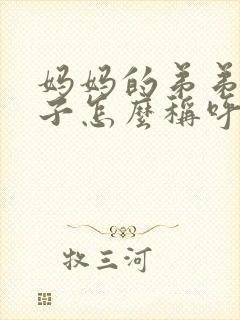 妈妈的弟弟
子怎麼稱呼
牧三河